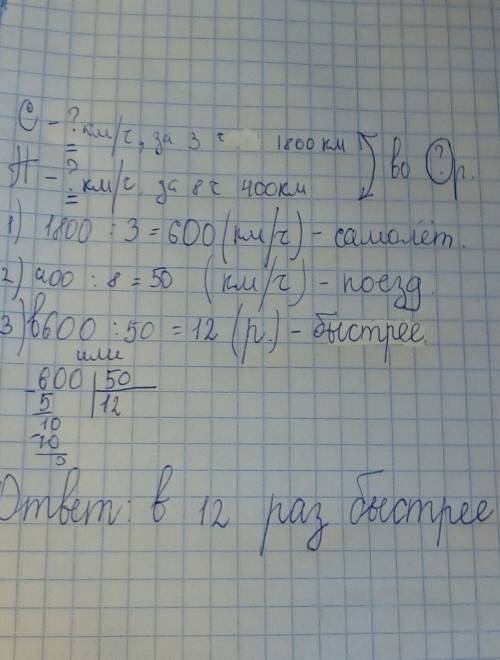 С - ? км/ч, за 3 ч 1800 км
П - ? км/ч, за 8 ч 400 км
во ? р.
1) 1800 : 3 = 600 (км/ч) - самолёт.
2) 400 : 8 = 50 (км/ч) - поезд.
3) в 600 : 50 = 12 (р.) - быстрее.
или
600 50
5 12
10
10
0
Ответ: в 12 раз быстрее